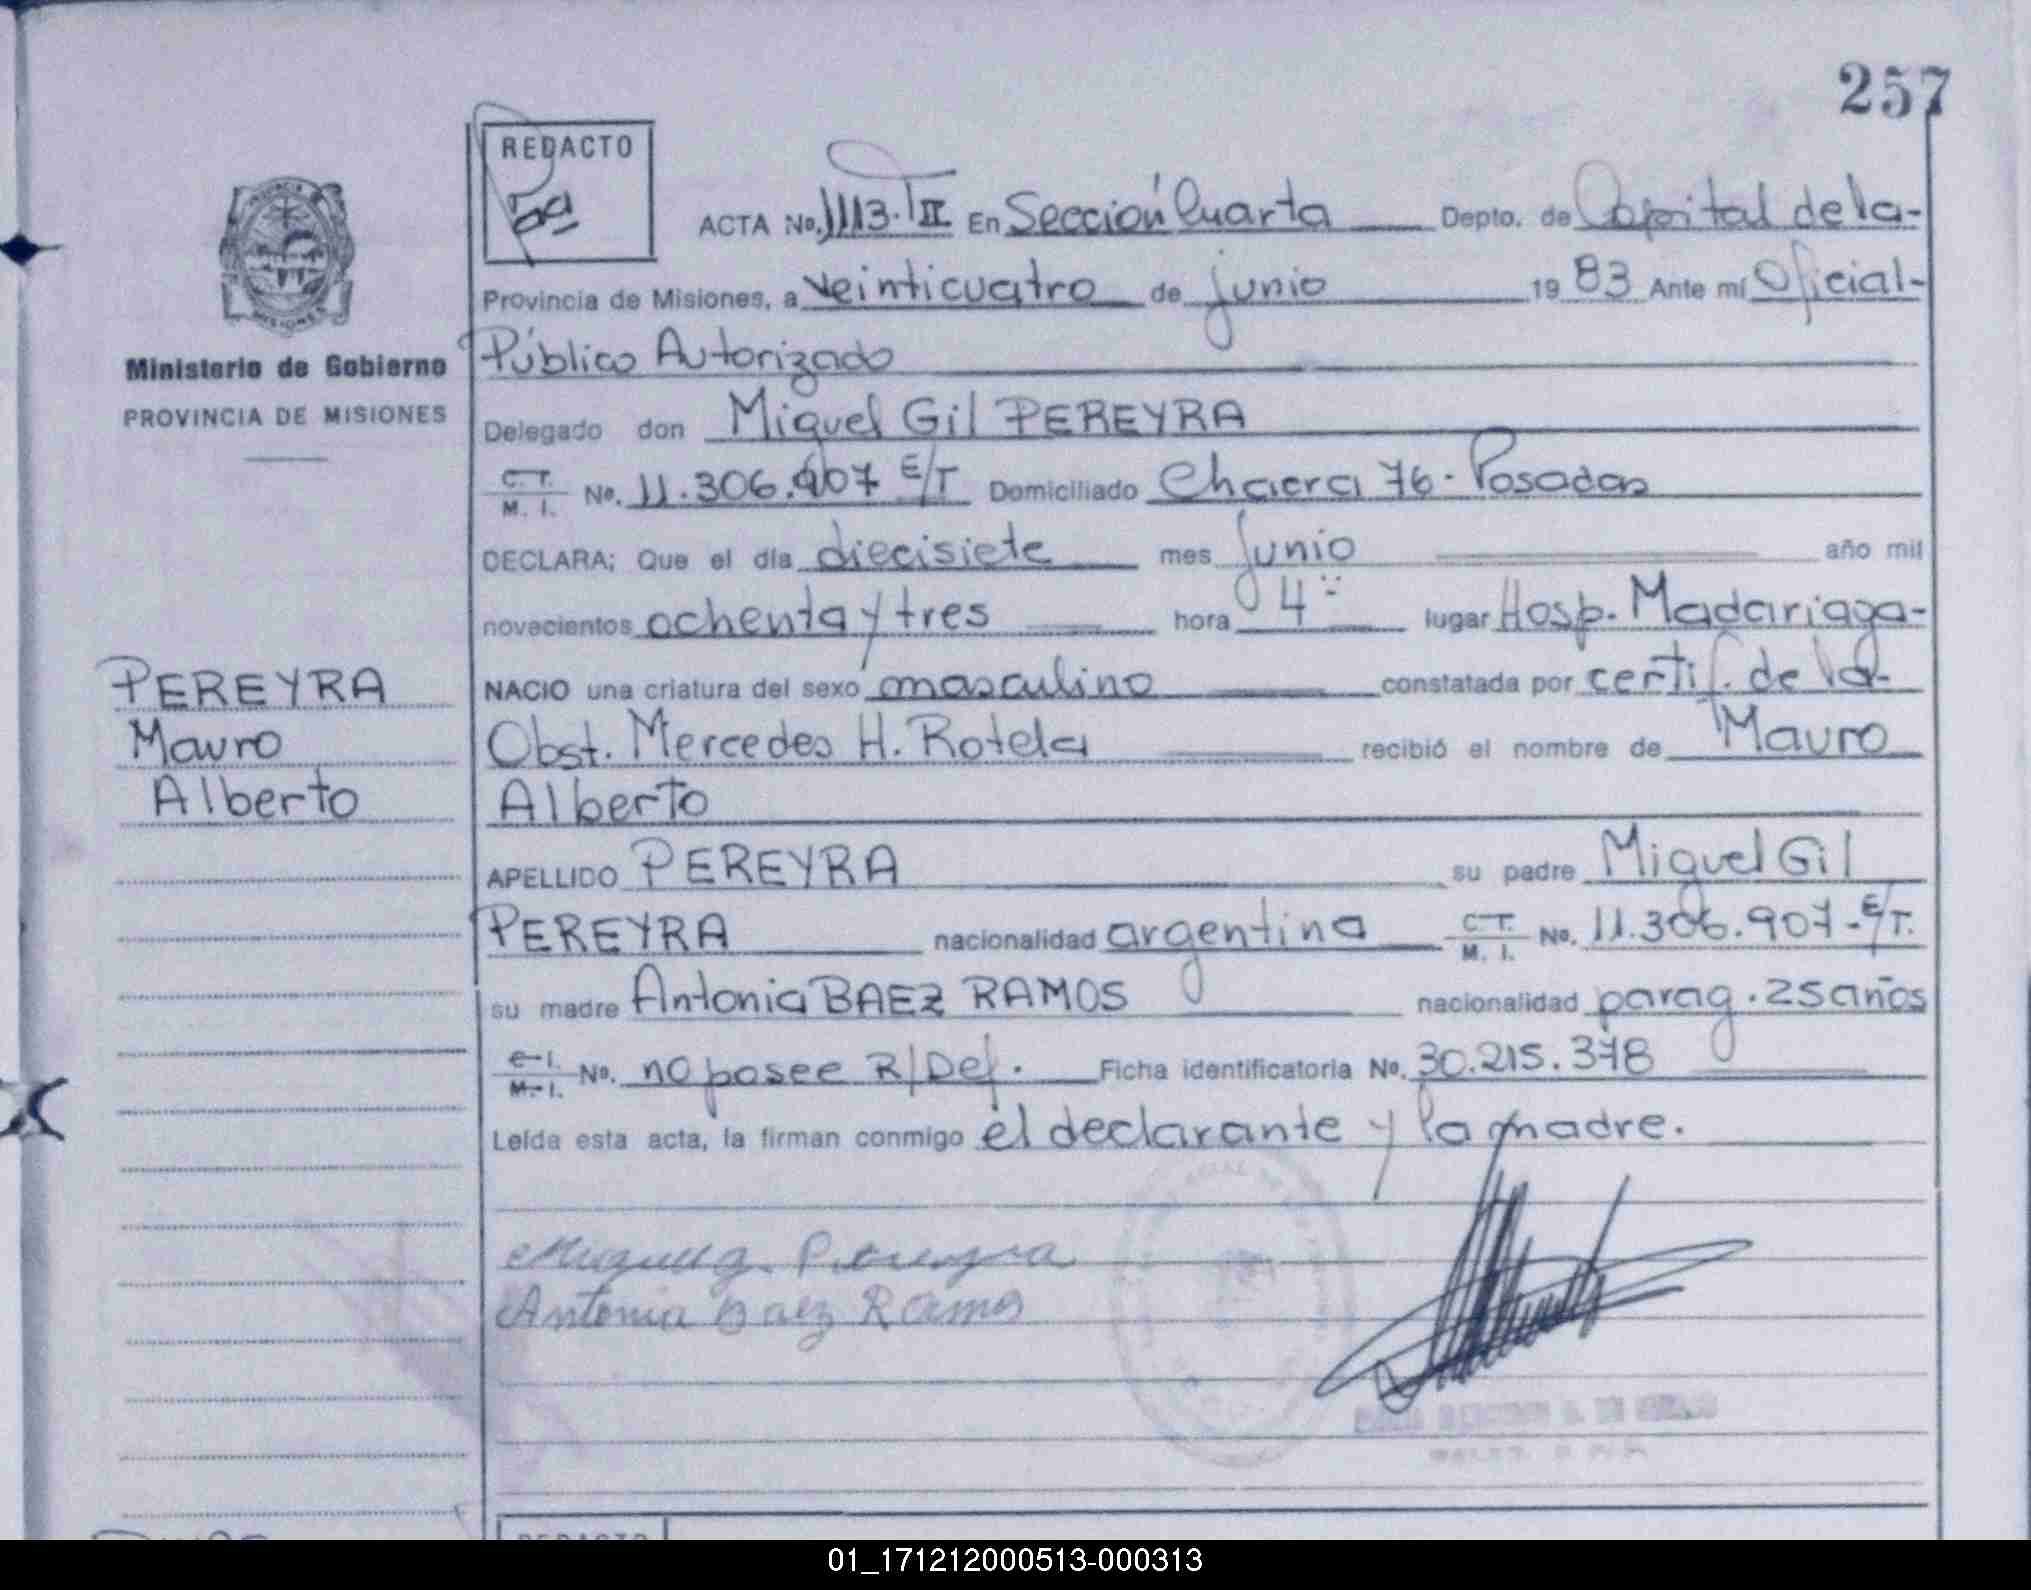 257
REDACTO
ACTA No. 1113. T II En Sección Cuarta Depto. de Capital de la-
Provincia de Misiones, a veinticuatro de junio 1983 Ante mí Oficial-
Ministerio de Gobierno
PROVINCIA DE MISIONES
Público Autorizado
Delegado don Miguel Gil PEREYRA
C. T. M. I. No. 11.306.907 E/T Domiciliado Chacra 76- Posadas
DECLARA; Que el día diecisiete mes junio año mil
novecientos ochenta y tres hora 4 lugar Hosp. Madariaga-
PEREYRA
Mauro
Alberto
NACIO una criatura del sexo masculino constatada por certif. de la-
Obst. Mercedes H. Rotela recibió el nombre de Mauro
Alberto
APELLIDO PEREYRA su padre Miguel Gil
PEREYRA nacionalidad argentina C. T. M. I. No. 11.306.907-E/T.
su madre Antonia BAEZ RAMOS nacionalidad parag. 25 años
C. I. M. I. No. no posee R/Def. Ficha identificatoria No. 30.215.378
Leída esta acta, la firman conmigo el declarante y la madre.
Miguel g. Pereyra
Antonia Baez Ramos
REDACTO
01_171212000513-000313